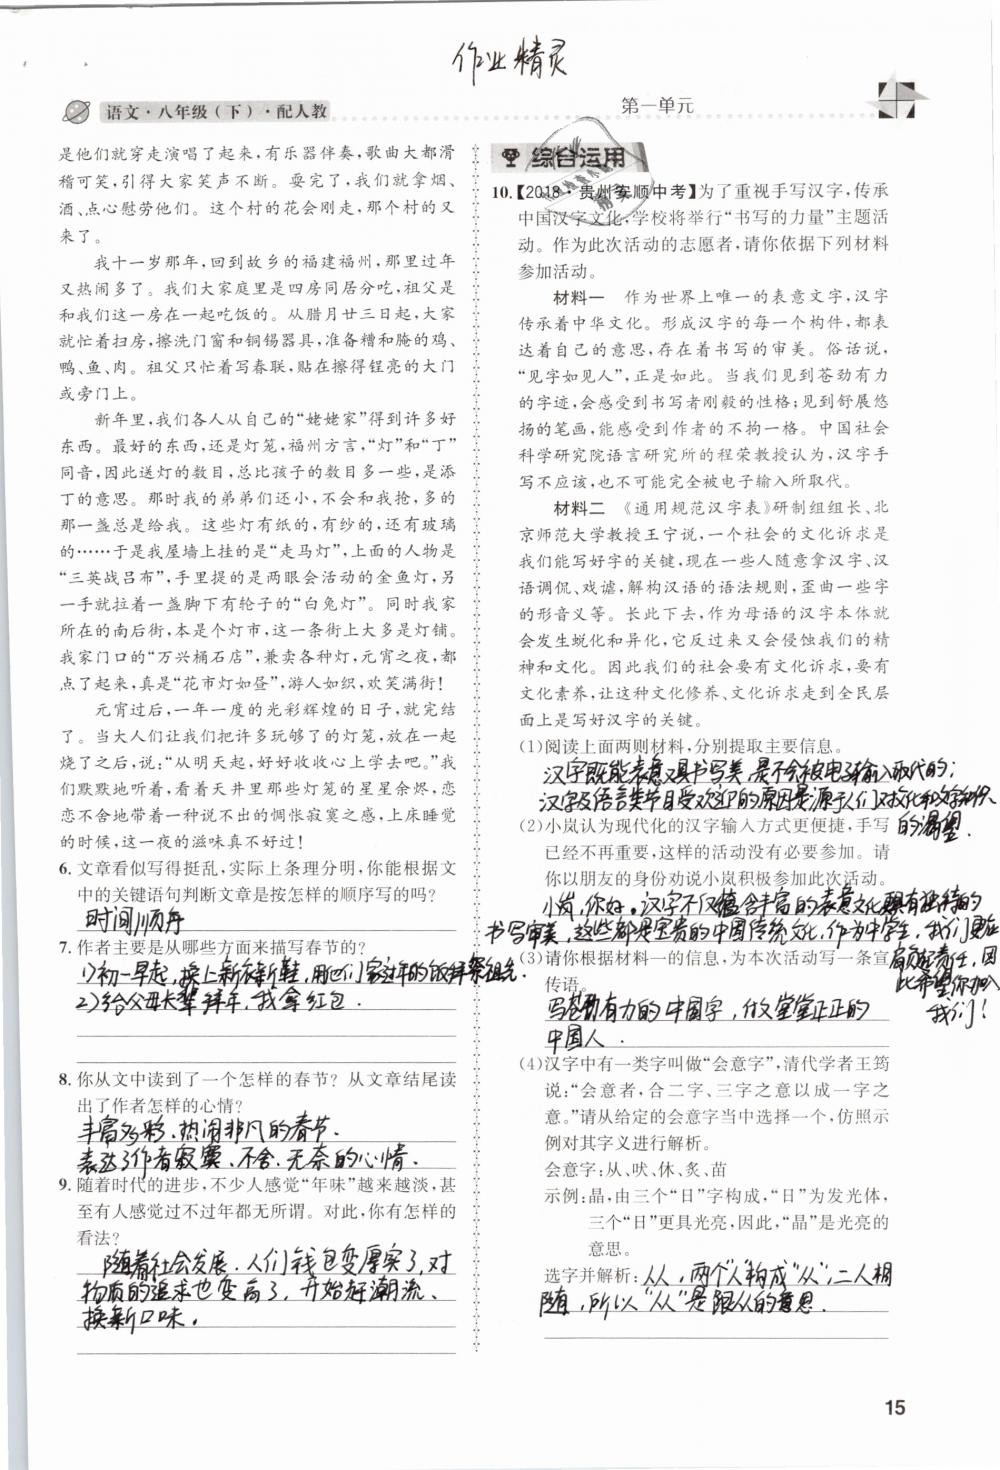 作业精灵
语文·八年级（下）·配人教
第一单元
是他们就穿走演唱了起来，有乐器伴奏，歌曲大都滑
稽可笑，引得大家笑声不断。耍完了，我们就拿烟、
酒、点心慰劳他们。这个村的花会刚走，那个村的又
来了。
我十一岁那年，回到故乡的福建福州，那里过年
又热闹多了。我们大家庭里是四房同居分吃，祖父是
和我们这一房在一起吃饭的。从腊月廿三日起，大家
就忙着扫房，擦洗门窗和铜锡器具，准备糟和腌的鸡、
鸭、鱼、肉。祖父只忙着写春联，贴在擦得锃亮的大门
或旁门上。
新年里，我们各人从自己的“姥姥家”得到许多好
东西。最好的东西，还是灯笼，福州方言，“灯”和“丁”
同音，因此送灯的数目，总比孩子的数目多一些，是添
丁的意思。那时我的弟弟们还小，不会和我抢，多的
那一盏总是给我。这些灯有纸的，有纱的，还有玻璃
的……于是我屋墙上挂的是“走马灯”，上面的人物是
“三英战吕布”，手里提的是两眼会活动的金鱼灯，另
一手就拉着一盏脚下有轮子的“白兔灯”。同时我家
所在的南后街，本是个灯市，这一条街上大多是灯铺。
我家门口的“万兴桶石店”，兼卖各种灯，元宵之夜，都
点了起来，真是“花市灯如昼”，游人如织，欢笑满街！
元宵过后，一年一度的光彩辉煌的日子，就完结
了。当大人们让我们把许多玩够了的灯笼，放在一起
烧了之后，说：“从明天起，好好收收心上学去吧。”我
们默默地听着，看着天井里那些灯笼的星星余烬，恋
恋不舍地带着一种说不出的惆怅寂寞之感，上床睡觉
的时候，这一夜的滋味真不好过！
6. 文章看似写得挺乱，实际上条理分明，你能根据文
中的关键语句判断文章是按怎样的顺序写的吗？
时间顺序
7. 作者主要是从哪些方面来描写春节的？
1)初一早起，换上新衣新鞋，用他们家过年的饭拜祭祖先
2)给父母长辈拜年，我拿红包.
8. 你从文中读到了一个怎样的春节？从文章结尾读
出了作者怎样的心情？
丰富多彩、热闹非凡的春节.
表达了作者寂寞、不舍、无奈的心情.
9. 随着时代的进步，不少人感觉“年味”越来越淡，甚
至有人感觉过不过年都无所谓。对此，你有怎样的
看法？
随着社会发展，人们钱包变厚实了，对
物质的追求也变高了，开始赶潮流、
换新口味。
综合运用
10.【2018·贵州安顺中考】为了重视手写汉字，传承
中国汉字文化，学校将举行“书写的力量”主题活
动。作为此次活动的志愿者，请你依据下列材料
参加活动。
材料一 作为世界上唯一的表意文字，汉字
传承着中华文化。形成汉字的每一个构件，都表
达着自己的意思，存在着书写的审美。俗话说，
“见字如见人”，正是如此。当我们见到苍劲有力
的字迹，会感受到书写者刚毅的性格；见到舒展悠
扬的笔画，能感受到作者的不拘一格。中国社会
科学研究院语言研究所的程荣教授认为，汉字手
写不应该，也不可能完全被电子输入所取代。
材料二 《通用规范汉字表》研制组组长、北
京师范大学教授王宁说，一个社会的文化诉求是
我们能写好字的关键，现在一些人随意拿汉字、汉
语调侃、戏谑，解构汉语的语法规则，歪曲一些字
的形音义等。长此下去，作为母语的汉字本体就
会发生蜕化和异化，它反过来又会侵蚀我们的精
神和文化。因此我们的社会要有文化诉求，要有
文化素养，让这种文化修养、文化诉求走到全民层
面上是写好汉字的关键。
(1)阅读上面两则材料，分别提取主要信息。
汉字既能表意又具书写美，是不会被电子输入取代的；
汉字及语言类节目受欢迎的原因是源于人们对文化和文字知识
的渴望.
(2)小岚认为现代化的汉字输入方式更便捷，手写
已经不再重要，这样的活动没有必要参加。请
你以朋友的身份劝说小岚积极参加此次活动。
小岚，你好。汉字不仅蕴含丰富的表意文化，更具有独特的
书写审美，这些都是宝贵的中国传统文化，作为中学生，我们更应
肩负起责任，因
此希望你加入
我们！
(3)请你根据材料一的信息，为本次活动写一条宣
传语。
写苍劲有力的中国字，做堂堂正正的
中国人.
(4)汉字中有一类字叫做“会意字”，清代学者王筠
说：“会意者，合二字、三字之意以成一字之
意。”请从给定的会意字当中选择一个，仿照示
例对其字义进行解析。
会意字：从、吠、休、炙、苗
示例：晶，由三个“日”字构成，“日”为发光体，
三个“日”更具光亮，因此，“晶”是光亮的
意思。
选字并解析：从，两个“人”构成“从”，二人相
随，所以“从”是跟从的意思.
15